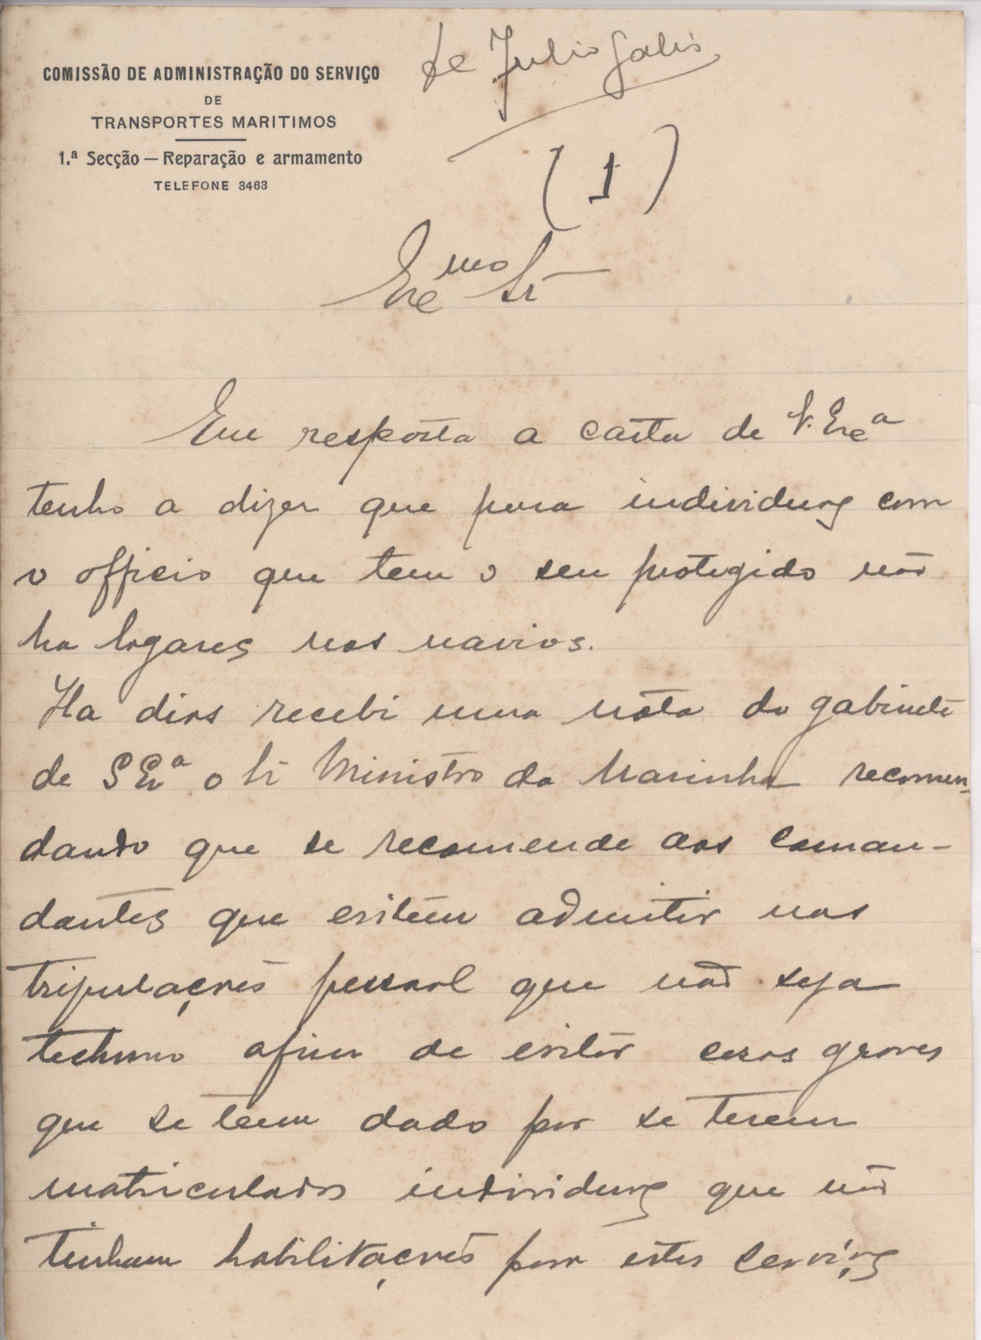 COMISSÃO DE ADMINISTRAÇÃO DO SERVIÇO
DE
TRANSPORTES MARITIMOS
1.ª Secção — Reparação e armamento
TELEFONE 3463
de Julio Galis
(1)
Exc mo Sr
Em resposta a carta de V. Exc a
tenho a dizer que para individuos com
o officio que tem o seu protegido não
ha logares nos navios.
Ha dias recebi uma nota do gabinete
de S Ex a o Sr Ministro da Marinha recomen-
dando que se recomende aos coman-
dantes que evitem admitir nas
tripulações pessoal que não seja
technico afim de evitar casos graves
que se teem dado por se terem
matriculados individuos que não
tinham habilitações para estes serviços